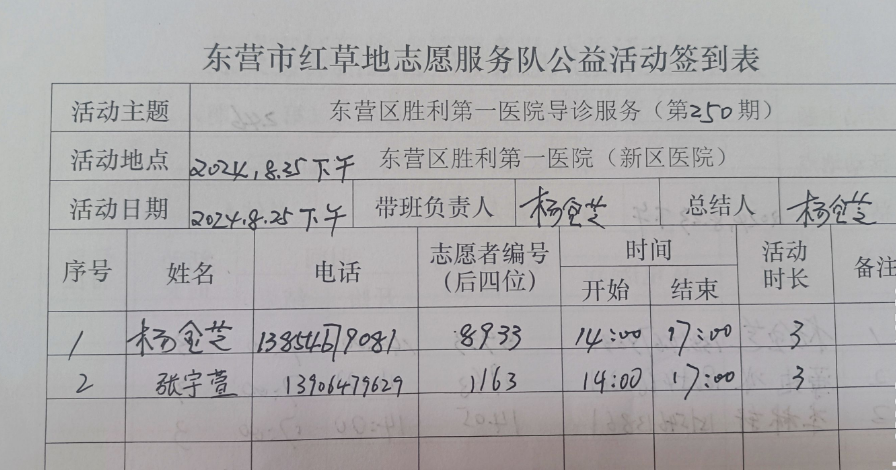 东营市红草地志愿服务队公益活动签到表
活动主题 东营区胜利第一医院导诊服务（第250期）
活动地点 2024.8.25下午 东营区胜利第一医院（新区医院）
活动日期 2024.8.25下午 带班负责人 杨金芝 总结人 杨金芝
序号 姓名 电话 志愿者编号（后四位） 时间 开始 结束 活动时长 备注
1 杨金芝 8933 14:00 17:00 3
2 张宇萱 13906479629 1163 14:00 17:00 3